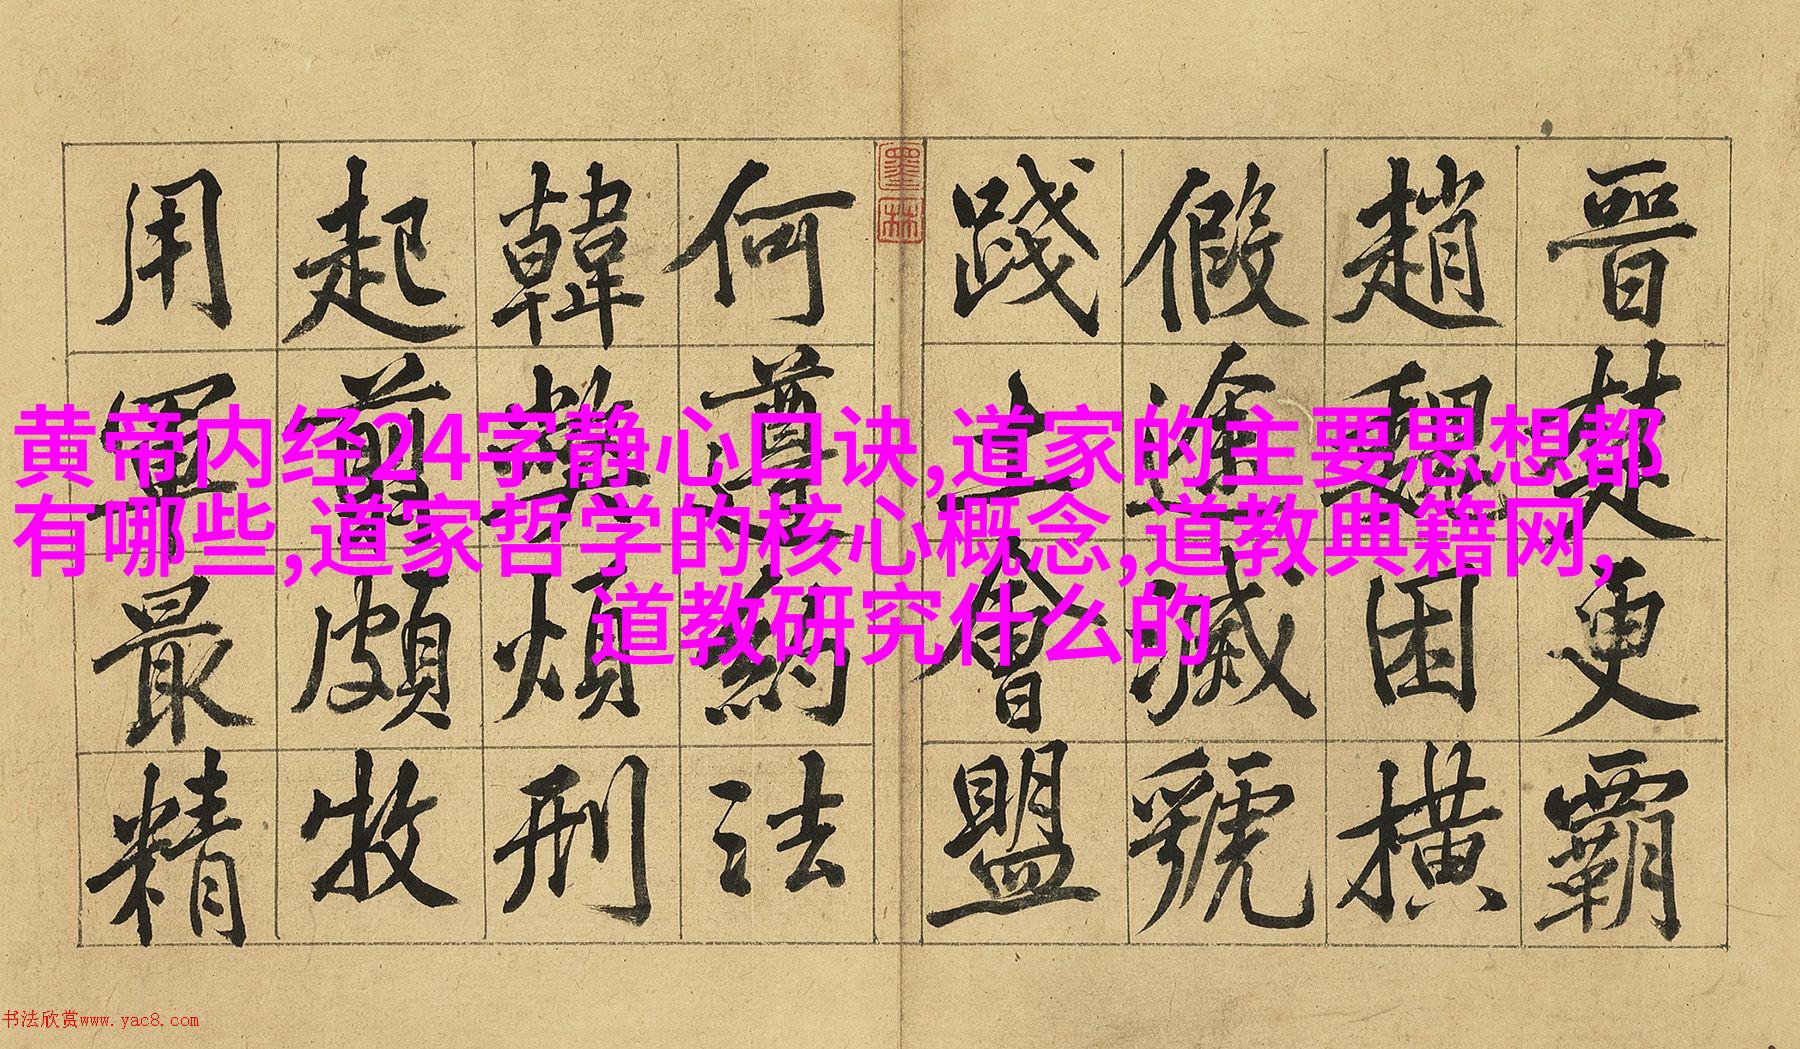 黄帝内经24字静心口诀,道家的主要思想都
有哪些,道家哲学的核心概念,道教典籍网,
道教研究什么的
晉楚更霸
趙魏困橫
假途滅虢
踐土會盟
何遵約法
韓弊煩刑
起翦頗牧
用軍最精
墨林
书法欣赏www.yac8.com